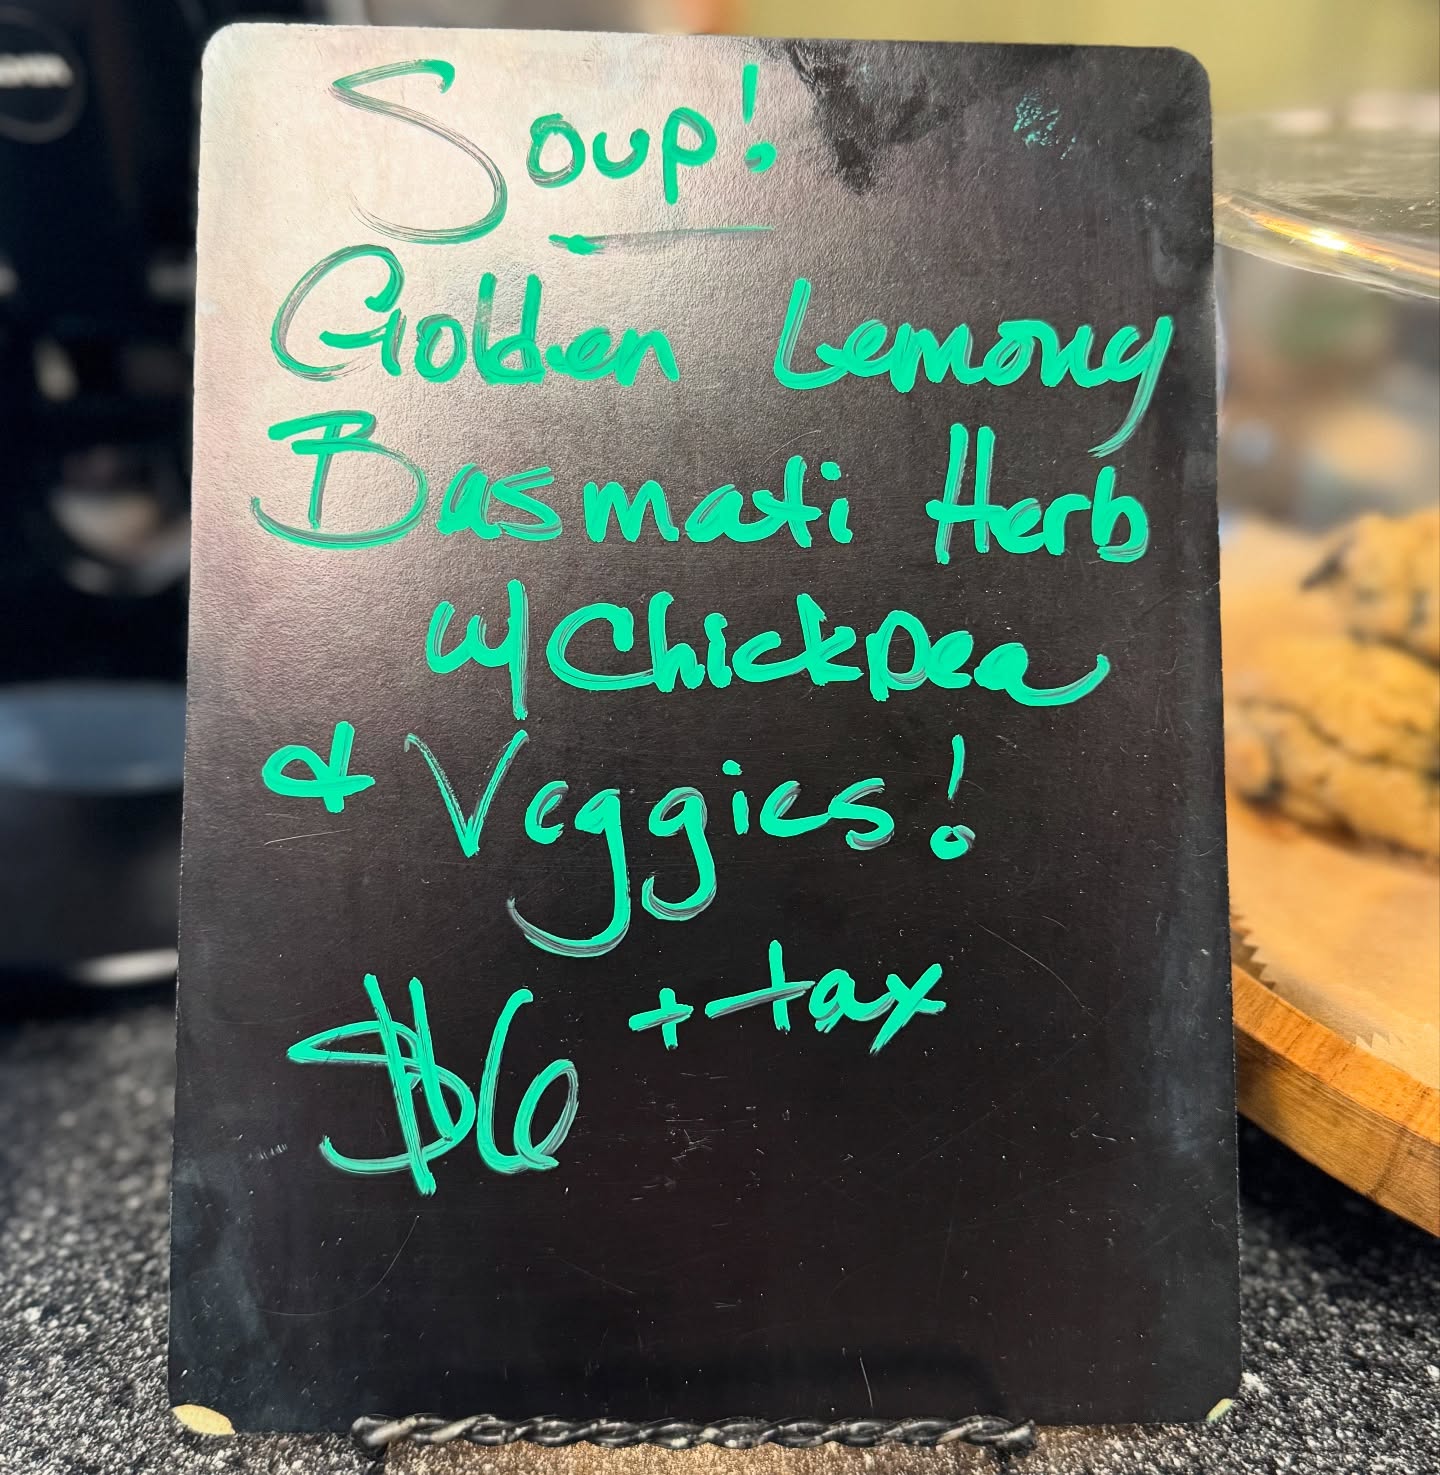 Soup!
Golden Lemony
Basmati Herb
w/ Chickpea
& Veggies!
$6 + tax